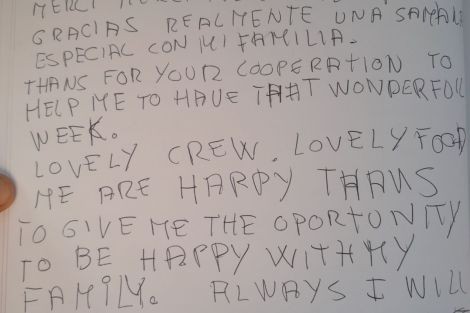 MERCI MERCI
GRACIAS REALMENTE UNA SAMANA
ESPECIAL CON MI FAMILIA.
THANS FOR YOUR COOPERATION TO
HELP ME TO HAVE THAT WONDERFOUL
WEEK.
LOVELY CREW. LOVELY FOOD
ME ARE HAPPY THANS
TO GIVE ME THE OPORTUNITY
TO BE HAPPY WITH MY
FAMILY. ALWAYS I WILL